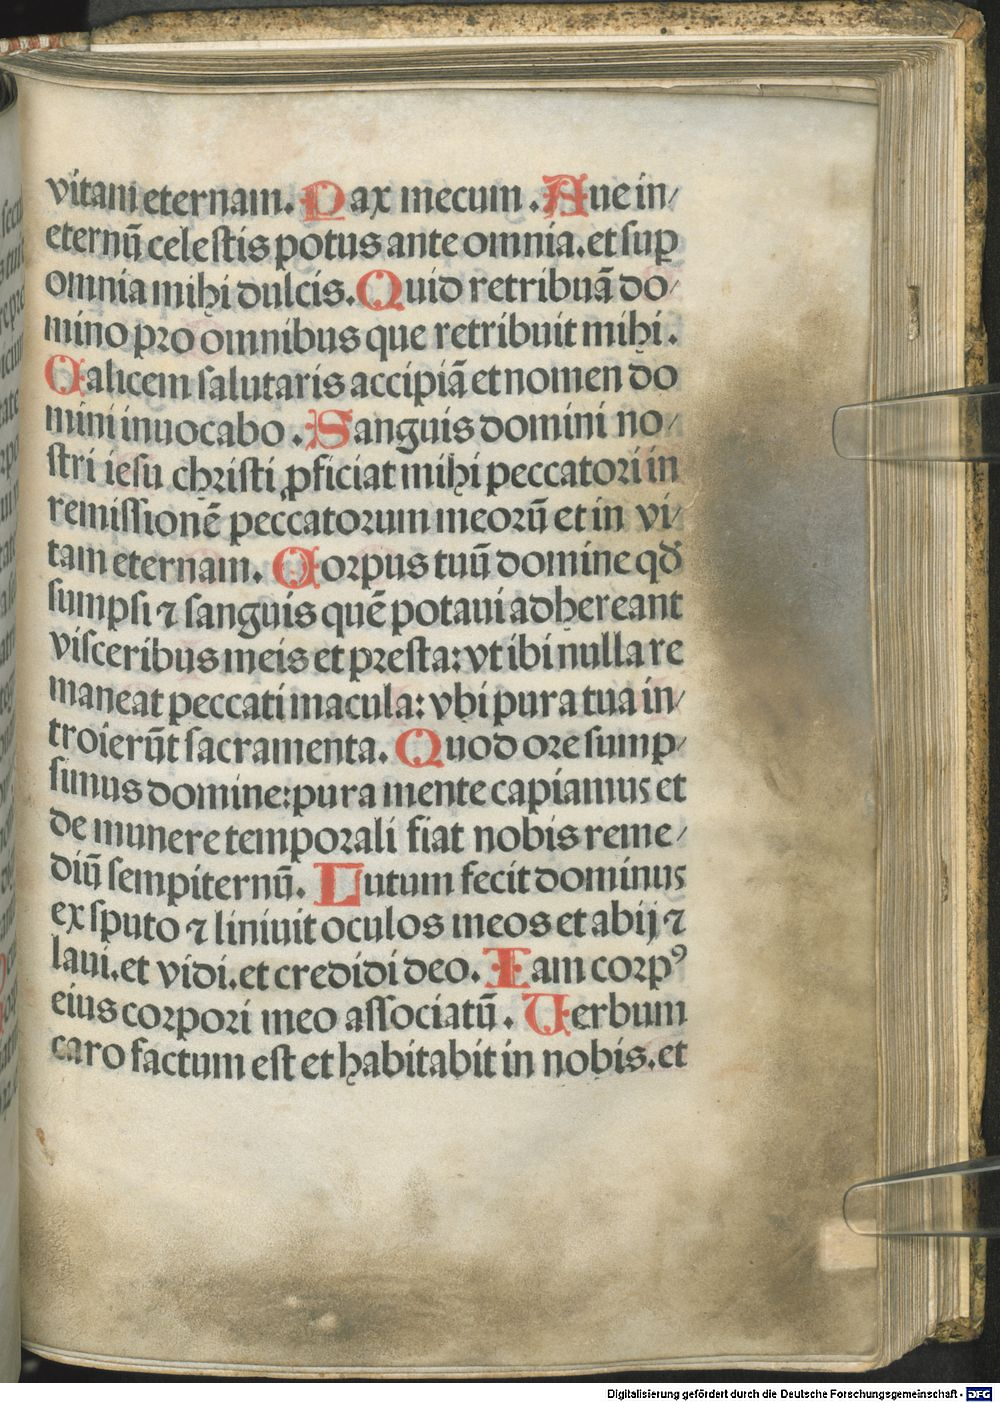 vitam eternam. Pax mecum. Aue in/
eternū celestis potus ante omnia. et sup
omnia mihi dulcis. Quid retribuā do/
mino pro omnibus que retribuit mihi.
Calicem salutaris accipiā et nomen do
mini inuocabo. Sanguis domini no/
stri iesu christi ꝓficiat mihi peccatori in
remissionē peccatorum meorū et in vi/
tam eternam. Corpus tuū domine qđ
sumpsi ⁊ sanguis quē potaui adhereant
visceribus meis et presta: vt ibi nulla re
maneat peccati macula: vbi pura tua in/
troierūt sacramenta. Quod ore sump/
simus domine: pura mente capiamus et
de munere temporali fiat nobis reme/
diū sempiternū. Lutum fecit dominus
ex sputo ⁊ liniuit oculos meos et abij ⁊
laui. et vidi. et credidi deo. Iam corpꝰ
eius corpori meo associatū. Uerbum
caro factum est et habitabit in nobis. et
Digitalisierung gefördert durch die Deutsche Forschungsgemeinschaft - DFG